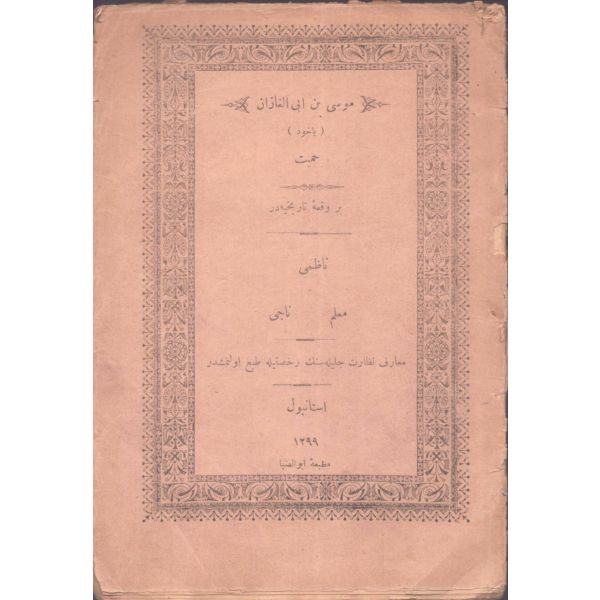 موسی بن ابی الغازان
( یاخود )
حمیت
بر وقعهٔ تاریخیه‌در
ناظمی
معلم ناجی
معارف نظارت جلیله‌سنك رخصتیله طبع اولنمشدر
استانبول
١٢٩٩
مطبعهٔ ابوالضیا